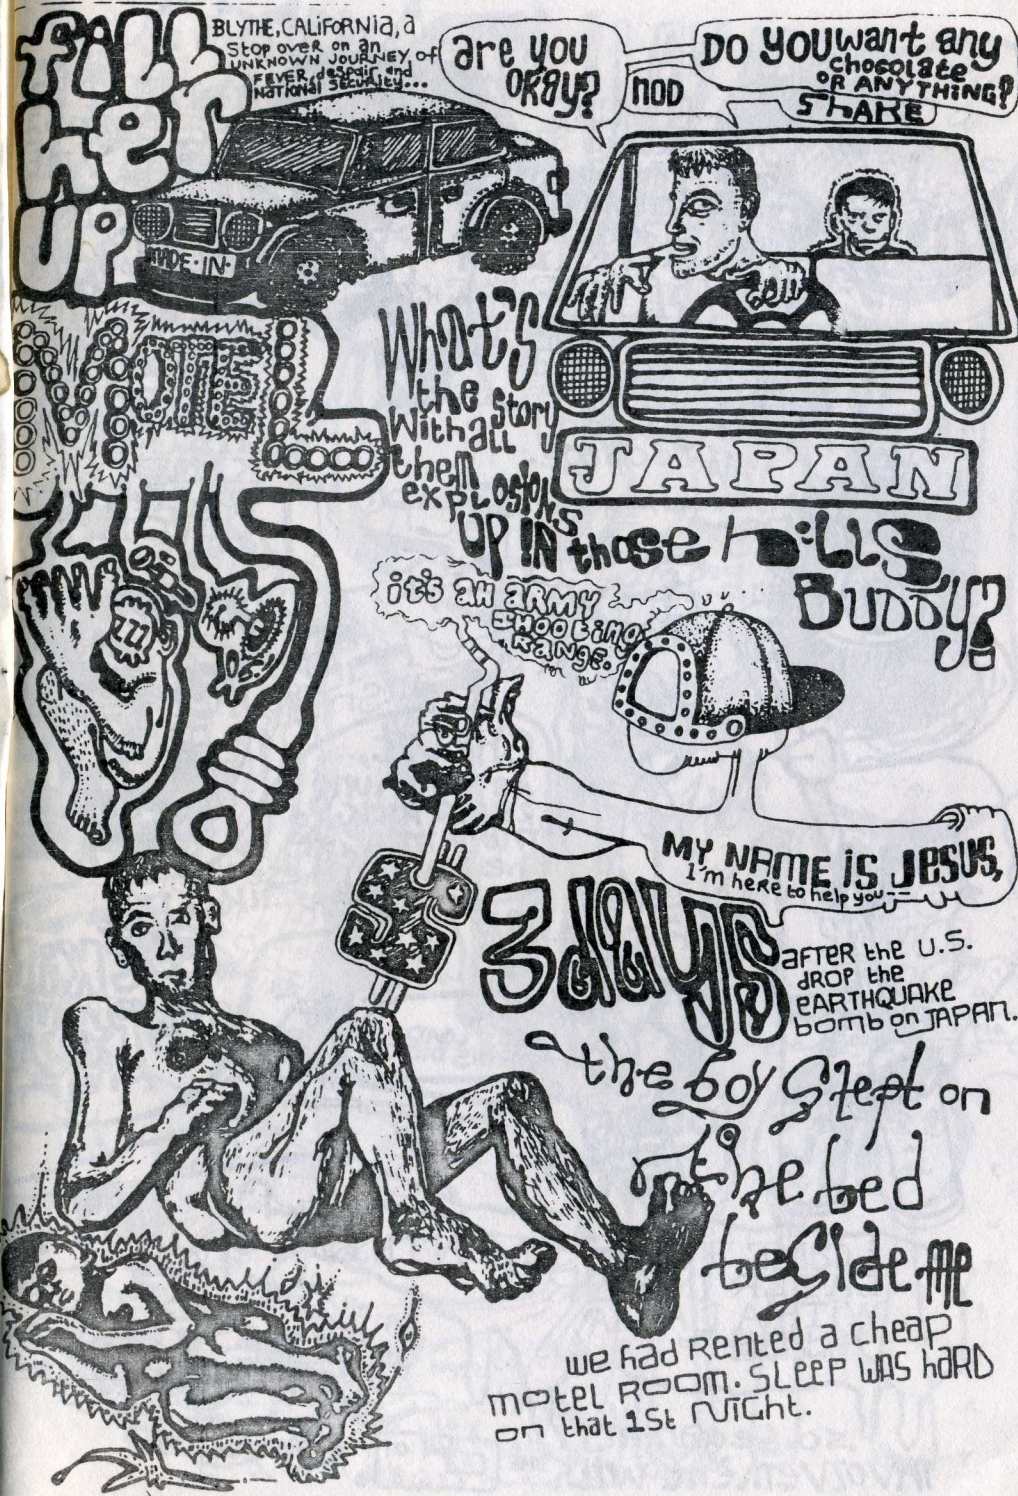 fill
her
UP
BLYTHE, CALIFORNIA, a
Stop over on an
UNKNOWN JOURNEY, of
FEVER, despair, and
National Security...
are you
okay?
NOD
DO YOU want any
chocolate
OR ANYTHING?
ShAKE
MADE·IN·
MOTEL
What's
the story
With all
them
explosions
UP IN those hills,
BUDDY?
JAPAN
it's an ARMY
Shooting
Range.
MY NAME iS JESUS,
I'm here to help you
3 days
AFTER the U.S.
DROP the
EARTHQUAKE
bomb on JAPAN.
the boy Slept on
the bed
beSide me
we had Rented a cheap
motel ROOM. SLEEP WAS haRD
on that 1St NiGht.